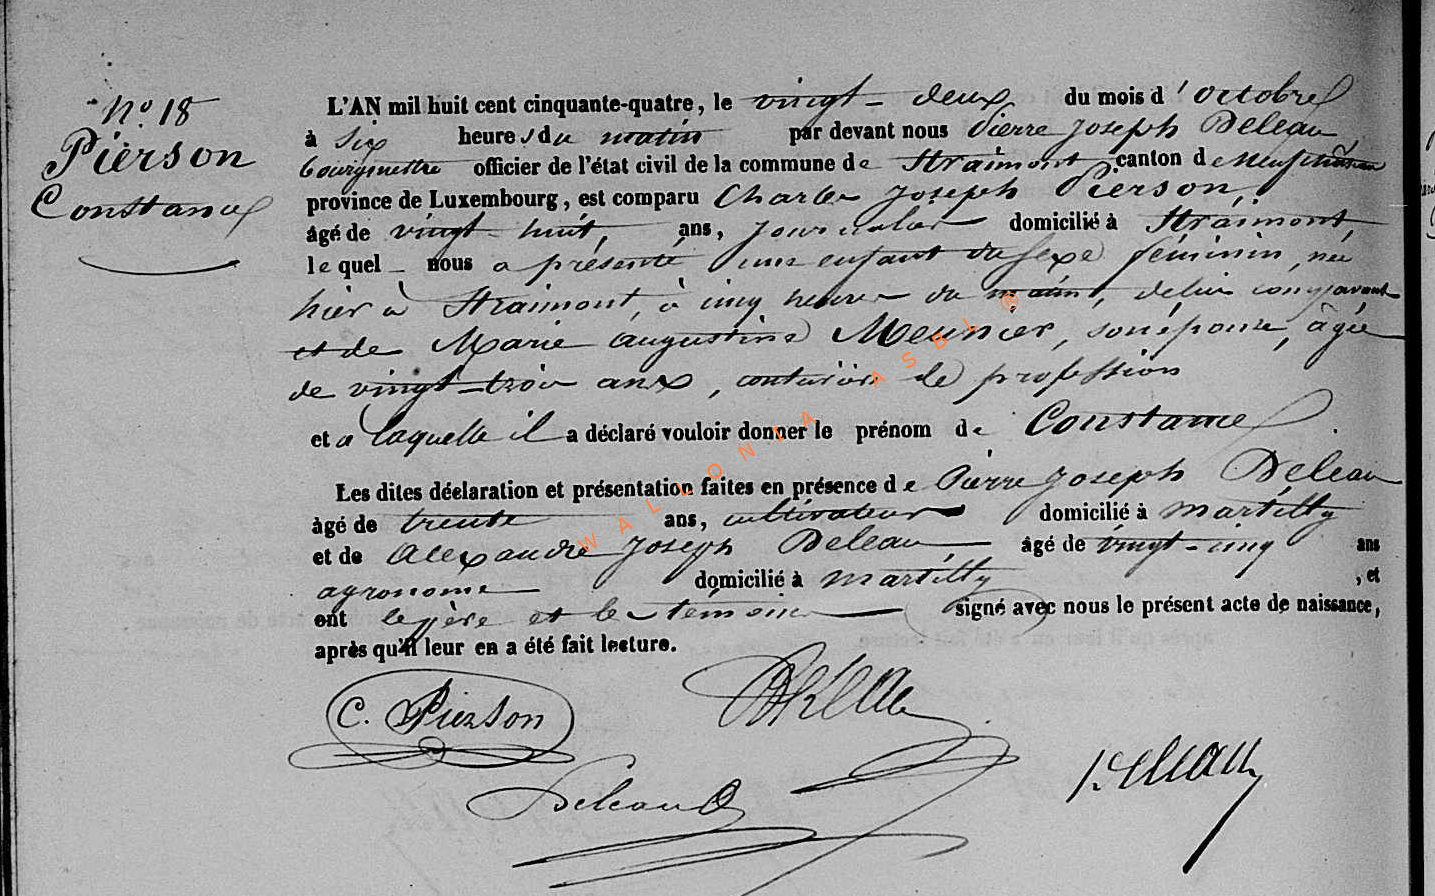 N.o 18
Pierson
Constance
L'AN mil huit cent cinquante-quatre, le vingt-deux du mois d'octobre
à six heures du matin par devant nous Pierre Joseph Deleau
bourgmestre officier de l'état civil de la commune de Straimont canton de Neufchâteau
province de Luxembourg, est comparu Charles Joseph Pierson,
âgé de vingt huit, ans, journalier domicilié à Straimont,
lequel nous a présenté une enfant du sexe féminin, née
hier à Straimont, à cinq heures du matin, de lui comparant
et de Marie Augustine Meunier, son épouse, âgée
de vingt-trois ans, couturière de profession
et a laquelle il a déclaré vouloir donner le prénom de Constance.
Les dites déclaration et présentation faites en présence de Pierre Joseph Deleau
âgé de trente ans, cultivateur domicilié à Martilly
et de Alexandre Joseph Deleau âgé de vingt-cinq ans
agronome domicilié à Martilly, et
ont le père et les témoins signé avec nous le présent acte de naissance,
après qu'il leur en a été fait lecture.
C. Pierson
Deleau
Deleau
WALLONIA ASBL ®